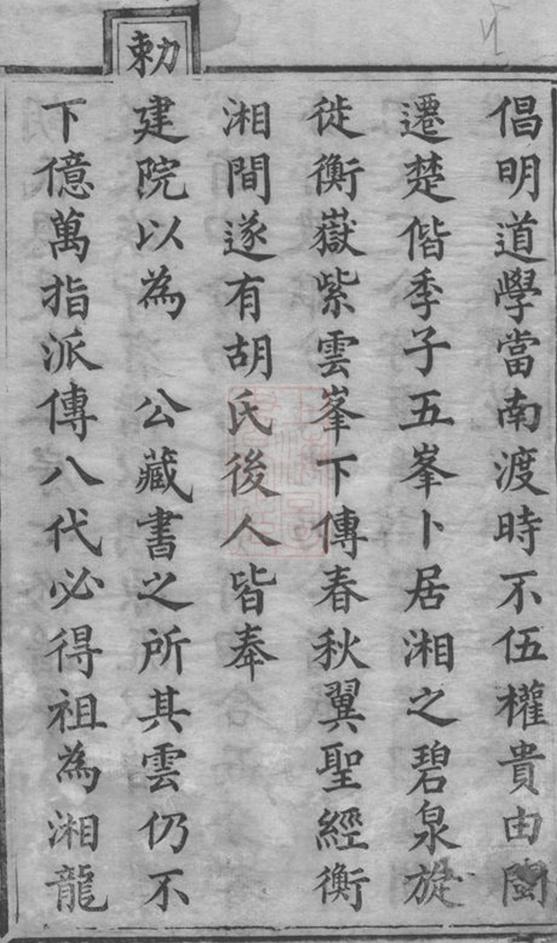 倡明道學當南渡時不伍權貴由閩
遷楚偕季子五峯卜居湘之碧泉旋
徙衡嶽紫雲峯下傳春秋翼聖經衡
湘間遂有胡氏後人皆奉
勅
建院以為　公藏書之所其雲仍不
下億萬指派傳八代必得祖為湘龍